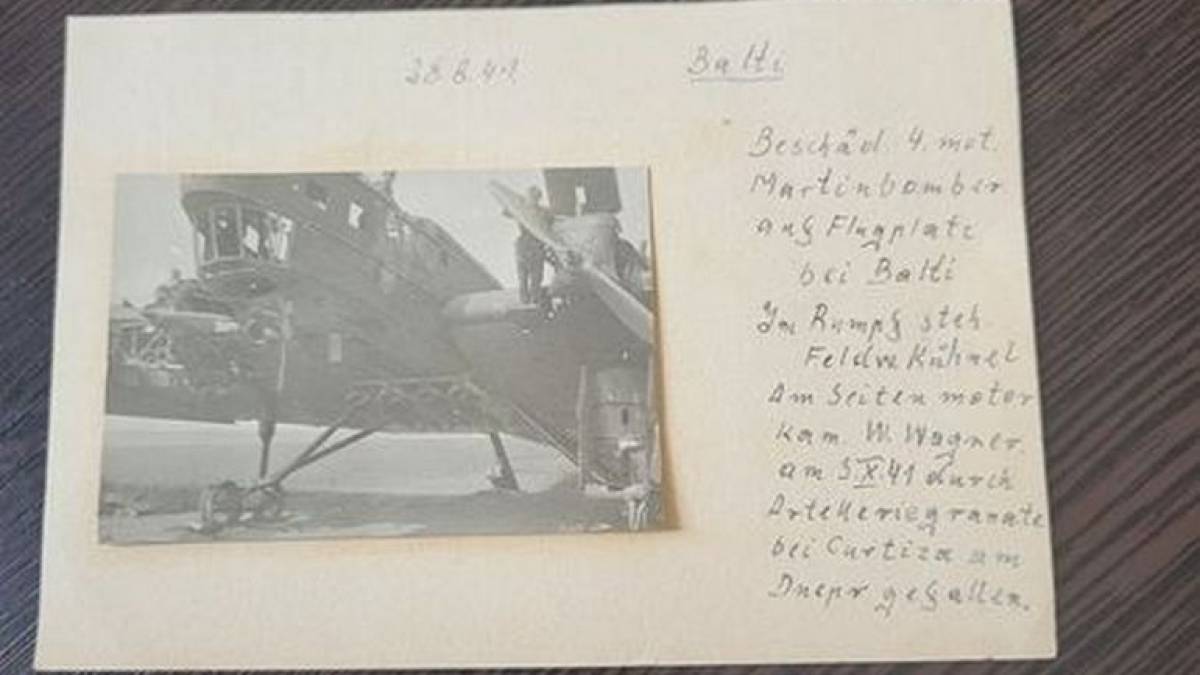 28.8.41.
Balti
Beschäd. 4. mot.
Martinbomber
auf Flugplatz
bei Balti
Im Rumpf steh
Feldw Kühnel
Am Seitenmotor
Kam. W. Wagner.
am 5.X.41 durch
Artelleriegranate
bei Curtiza am
Dnepr gefallen.